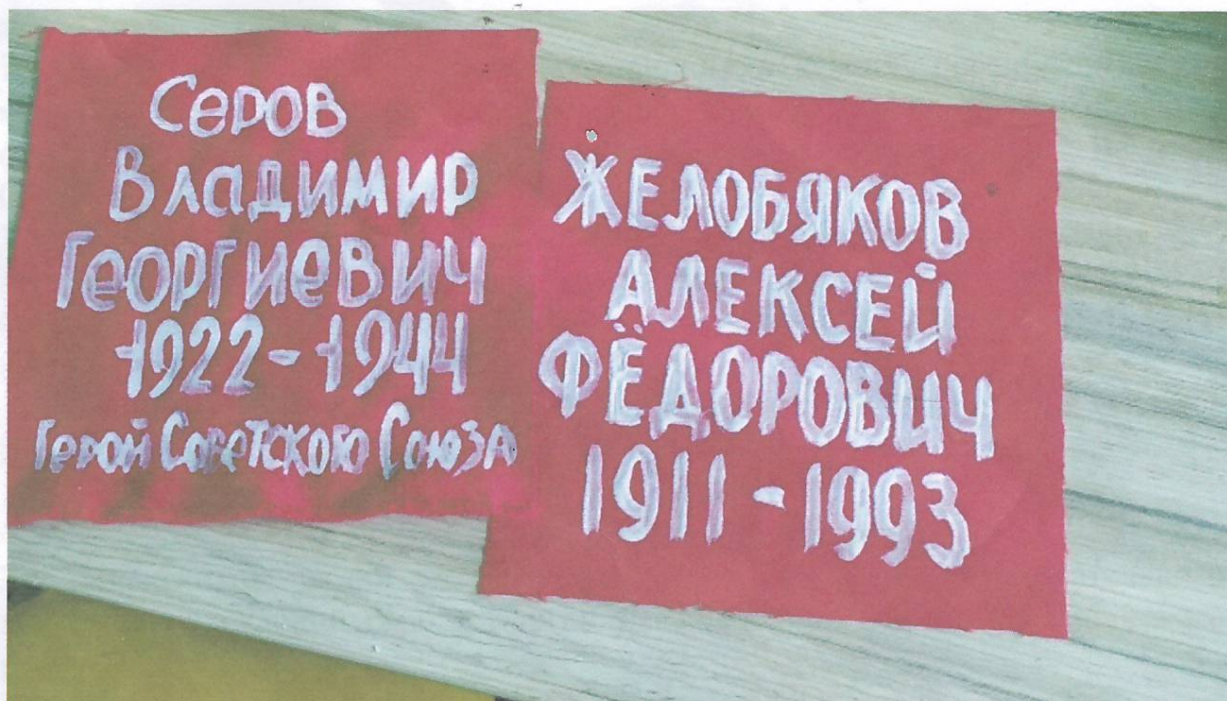 Серов
Владимир
Георгиевич
1922-1944
Герой Советского Союза
ЖЕЛОБЯКОВ
АЛЕКСЕЙ
ФЁДОРОВИЧ
1911-1993